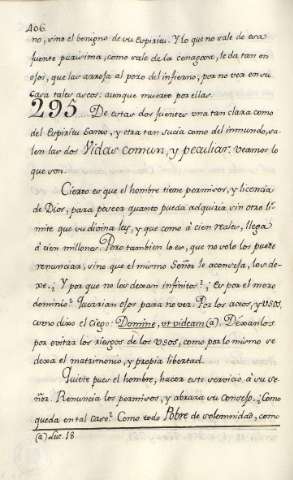 406
no, sino el benigno de su Espiritu. Y lo que no sale de esa
fuente purissima, como sale de la cenagosa, le da tan en
ojos, que las arroja al pozo del infierno, por no vèr en su
cara tales ascos: aunque muere por ellas.
295 De estas dos fuentes una tan clara como
del Espiritu Santo, y otra tan sucia como del inmundo, sa-
len las dos Vidas comun, y peculiar: veamos lo
que son.
Cierto es que el hombre tiene permisos, y licencia
de Dios, para poseèr quanto pueda adquirir sin otro lì-
mite que su divina ley, y que como à cien reales, llega
à cien millones. Pero tambien lo es, que no solo los puede
renunciar, sino que el mismo Señor le aconseja, los de-
xe. ¿Y por que no los dexan infinitos? ¿Es por el mero
dominio? Quitarian ojos para no vèr. Por los ascos, y usos,
como dixo el ciego: Domine, ut videam (a). Dèxanlos
por evitar los riesgos de los usos, como por lo mismo se
dexa el matrimonio, y propia libertad.
Quiere pues el hombre, hacer este servicio à su se-
ñor. Renuncia los permisos, y abraza su consejo. ¿Como
queda en tal caso? Como todo Pobre de solemnidad, como
(a) Luc. 18